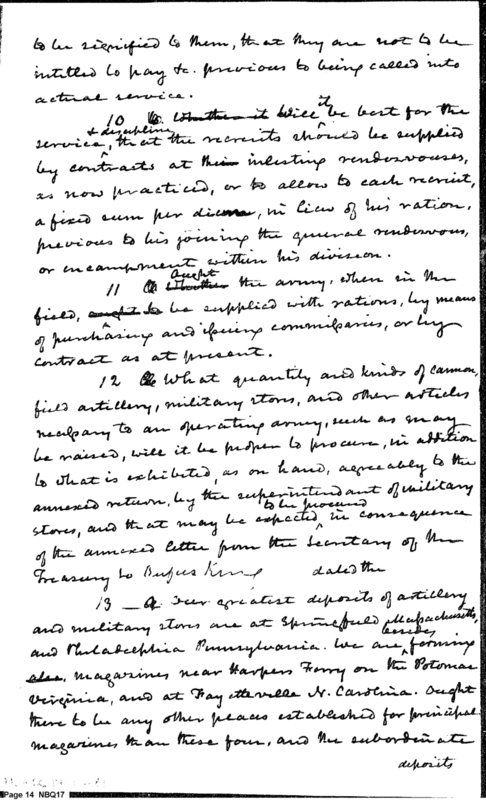 to be signified to them, that they are not to be
intitled to pay &c. previous to being called into
actual service.
10 Q. Whether it will it be best for the
service, & discipline that the recruits should be supplied
by contracts at their inlisting rendezvouses,
as now practiced, or to allow to each recruit,
a fixed sum per diem, in lieu of his ration,
previous to his joining the general rendezvous,
or encampment within his division.
11 Q Whether Ought the army, when in the
field, ought to be supplied with rations, by means
of purchasing and issuing commissaries, or by
contract as at present.
12 Q What quantity and kinds of cannon,
field artillery, military stores, and other articles
necessary to an operating army, such as may
be raised, will it be proper to procure, in addition
to what is exhibited, as on hand, agreeably to the
annexed return, by the superintendant of military
stores, and that may be expected, to be procured in consequence
of the annexed letter from the Secretary of the
Treasury to Rufus King dated the
13 — Q. Our greatest deposits of artillery
and military stores are at Springfield Massachusetts,
and Philadelphia Pennsylvania. We are besides forming
magazines near Harpers Ferry on the Potomac
Virginia, and at Fayetteville N. Carolina. Ought
there to be any other places established for principal
magazines than these four, and the subordinate
deposits
Page 14 NBQ17